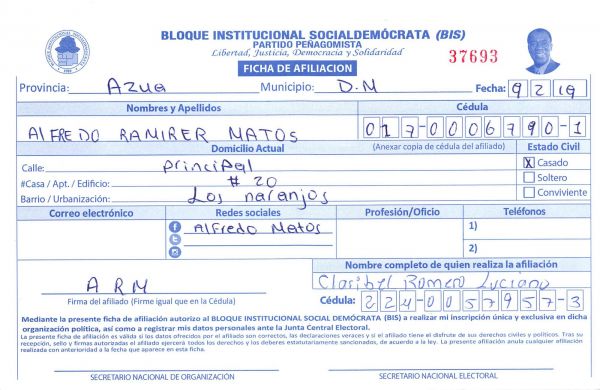 BLOQUE INSTITUCIONAL SOCIALDEMÓCRATA (BIS)
PARTIDO PEÑAGOMISTA
Libertad, Justicia, Democracia y Solidaridad
37693
FICHA DE AFILIACION
Provincia: Azua Municipio: D.M Fecha: 9 2 19
Nombres y Apellidos Cédula
AlFREDO RAMIRER MATOS 017-0006790-1
Domicilio Actual (Anexar copia de cédula del afiliado) Estado Civil
Calle: principal X Casado
#Casa / Apt. / Edificio: # 20 Soltero
Barrio / Urbanización: Los naranjos Conviviente
Correo electrónico Redes sociales Profesión/Oficio Teléfonos
Alfredo Matos 1)
2)
Nombre completo de quien realiza la afiliación
ARM Claribel Romero Luciano
Firma del afiliado (Firme igual que en la Cédula) Cédula: 224-0057957-3
Mediante la presente ficha de afiliación autorizo al BLOQUE INSTITUCIONAL SOCIAL DEMÓCRATA (BIS) a realizar mi inscripción única y exclusiva en dicha
organización política, así como a registrar mis datos personales ante la Junta Central Electoral.
La presente ficha de afiliación es válida si los datos ofrecidos por el afiliado son correctos, las declaraciones veraces y si el afiliado tiene el disfrute de sus derechos civiles y políticos. Tras su
recepción, sello y firmas autorizadas el afiliado ejercerá todos los derechos y los deberes estatutariamente sancionados, de acuerdo a la ley. La presente afiliación anula cualquier afiliación
realizada con anterioridad a la fecha que aparece en esta ficha.
SECRETARIO NACIONAL DE ORGANIZACIÓN SECRETARIO NACIONAL ELECTORAL